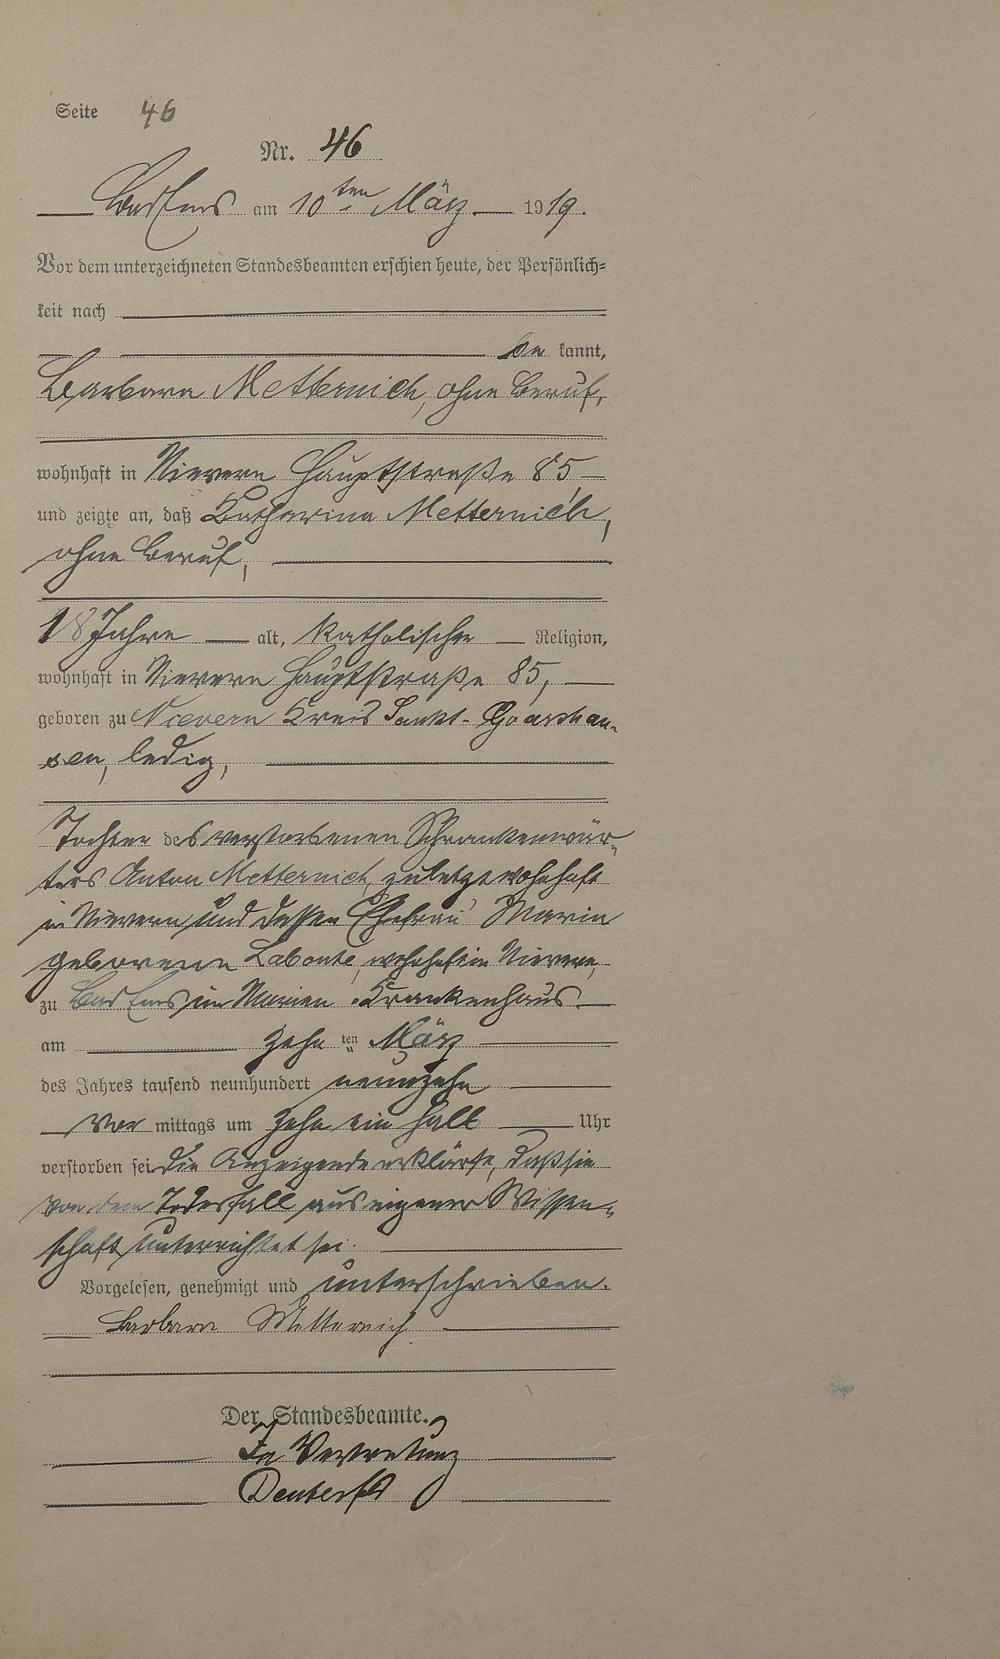 Seite 46
Nr. 46
Bad Ems am 10ten März 1919.
Vor dem unterzeichneten Standesbeamten erschien heute, der Persönlich=
keit nach
be kannt,
Barbara Metternich, ohne Beruf,
wohnhaft in Nievern Hauptstraße 85,
und zeigte an, daß Katharina Metternich,
ohne Beruf,
18 Jahre alt, katholischer Religion,
wohnhaft in Nievern Hauptstraße 85,
geboren zu Nievern Kreis Sankt-Goarshau-
sen, ledig,
Tochter des verstorbenen Schrankenwär-
ters Anton Metternich, zuletzt wohnhaft
in Nievern und dessen Ehefrau Maria
geborenen Labonte, wohnhaft in Nievern,
zu Bad Ems im Marien-Krankenhaus
am zehn ten März
des Jahres tausend neunhundert neunzehn
Vor mittags um zehn ein halb Uhr
verstorben sei. Die Anzeigende erklärte, daß sie
von dem Todesfall aus eigener Wissen=
schaft unterrichtet sei.
Vorgelesen, genehmigt und unterschrieben.
Barbara Metternich
Der Standesbeamte.
In Vertretung